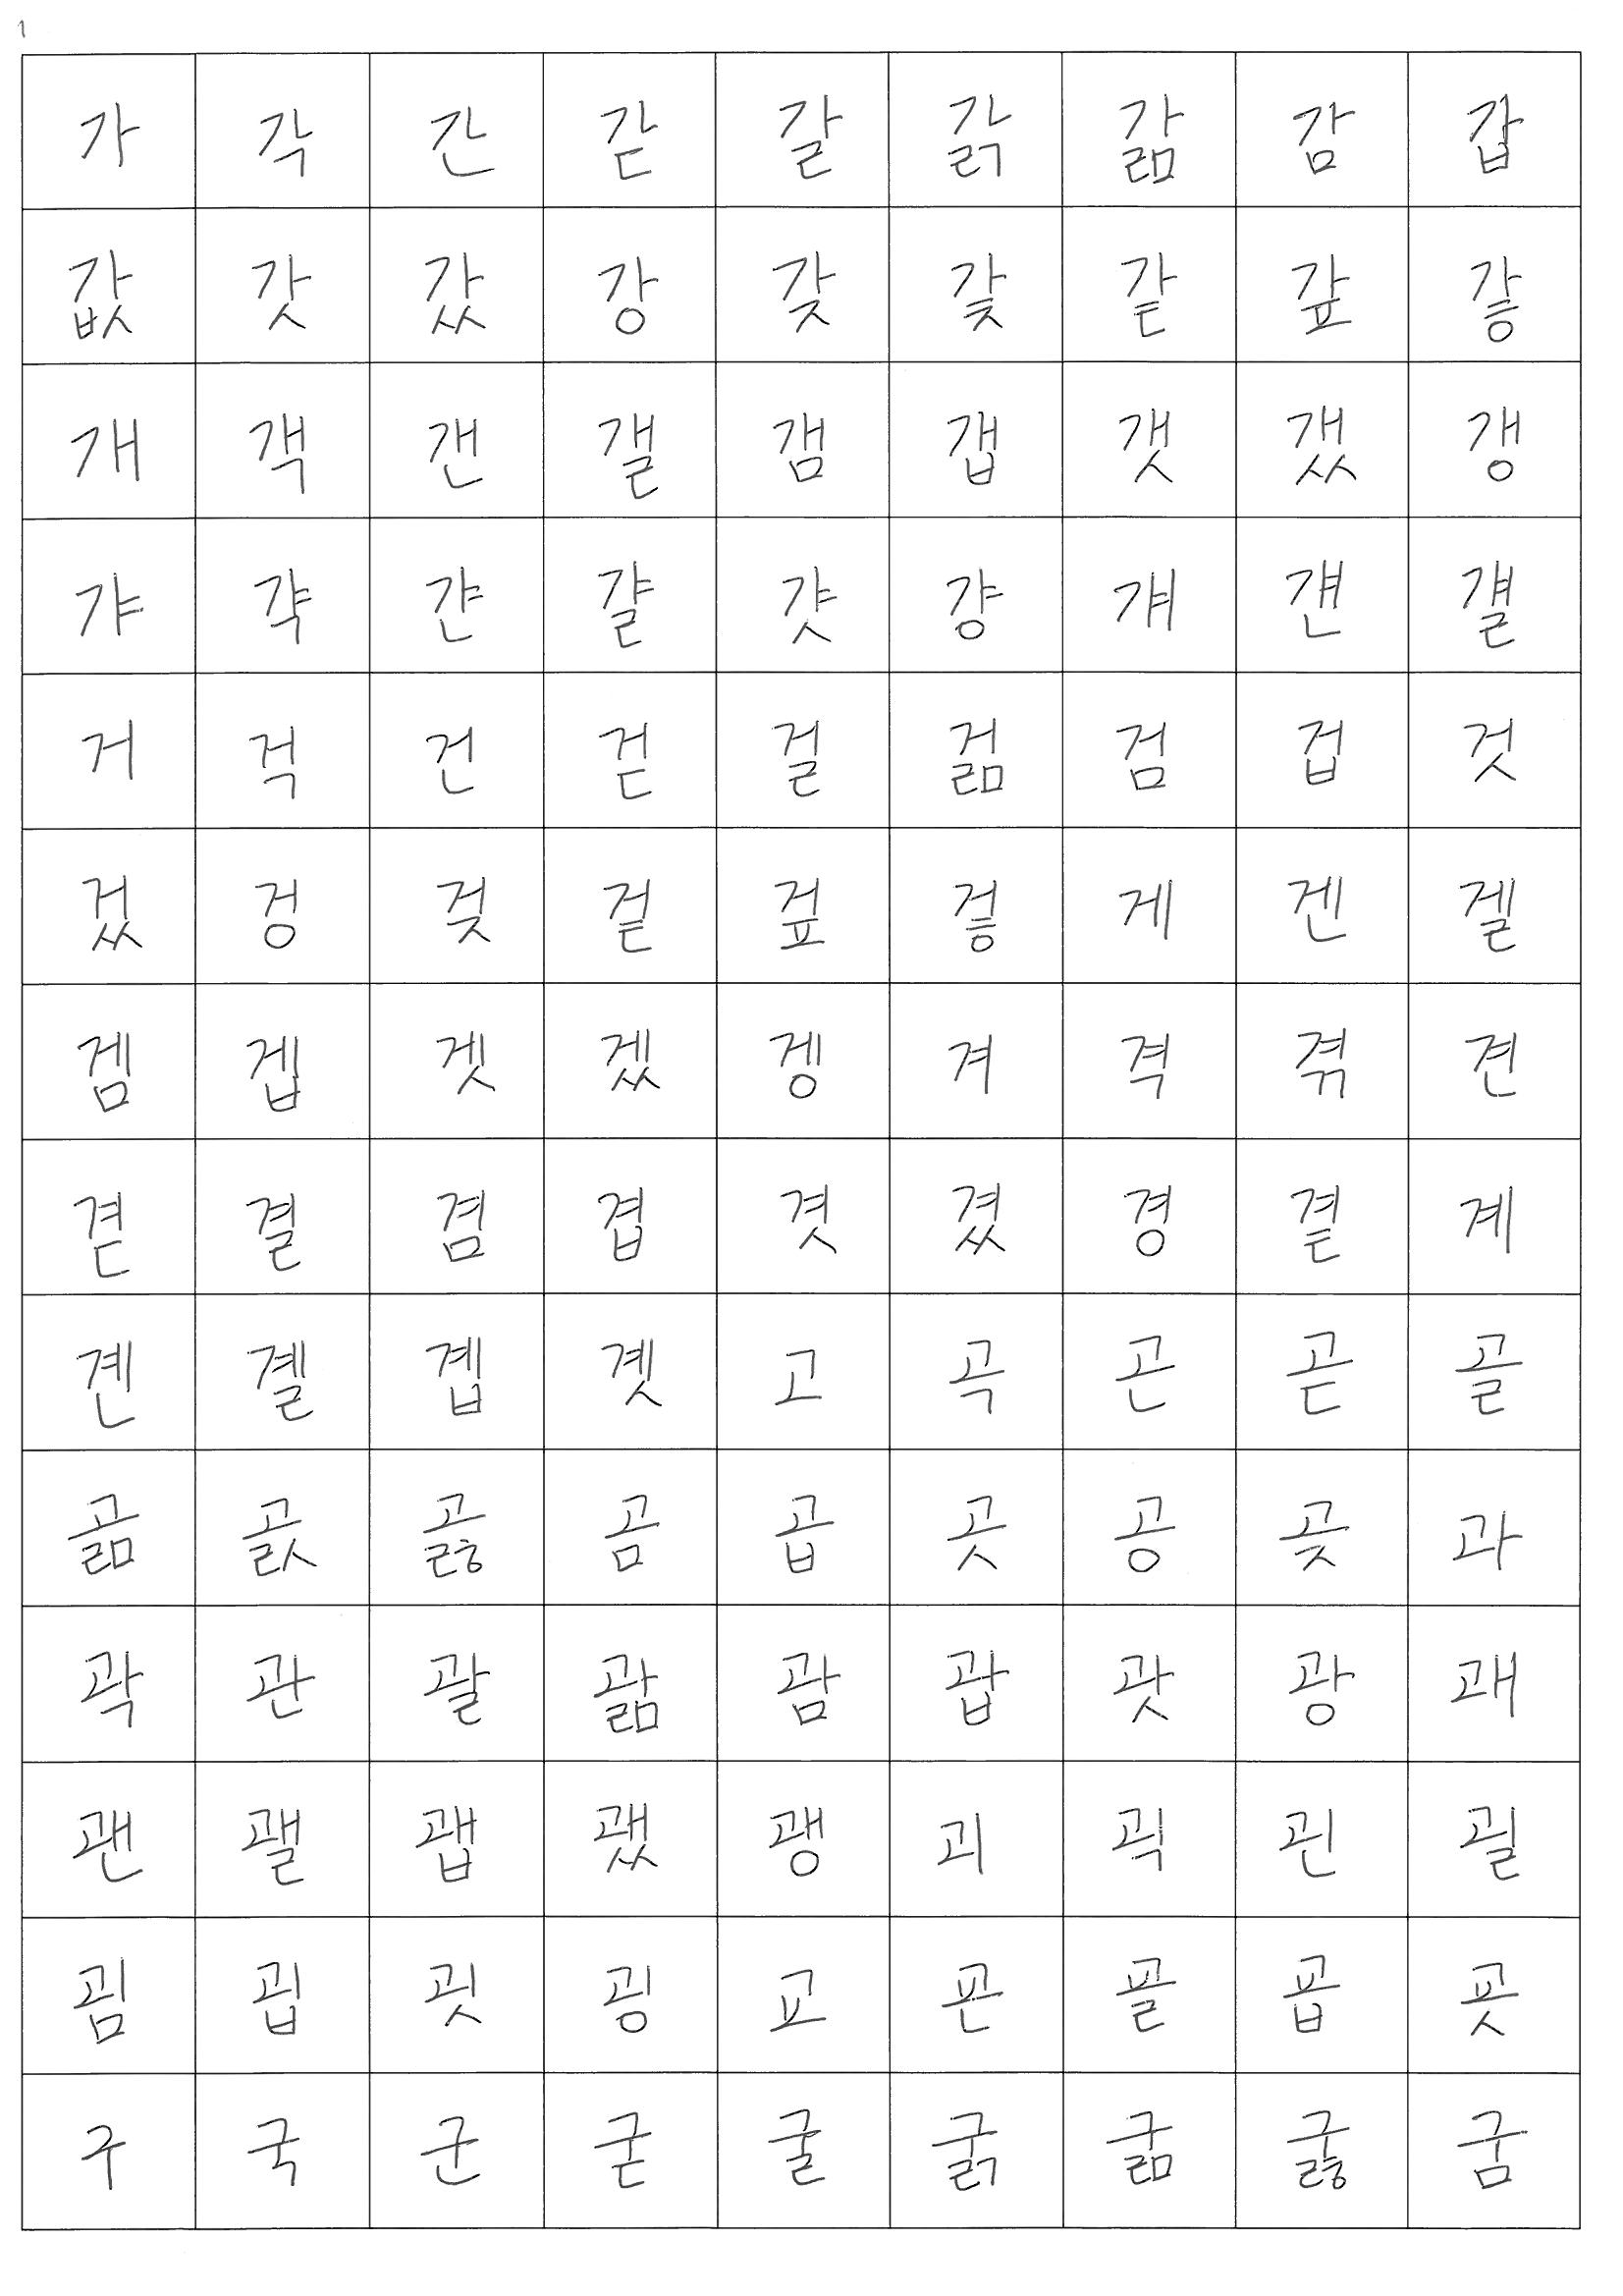 1
가 각 간 갇 갈 갉 갊 감 갑
값 갓 갔 강 갖 갗 같 갚 갛
개 객 갠 갤 갬 갭 갯 갰 갱
갸 갹 갼 걀 걋 걍 걔 걘 걜
거 걱 건 걷 걸 걺 검 겁 것
겄 겅 겆 겉 겊 겋 게 겐 겔
겜 겝 겟 겠 겡 겨 격 겪 견
겯 결 겸 겹 겻 겼 경 곁 계
곈 곌 곕 곗 고 곡 곤 곧 골
곪 곬 곯 곰 곱 곳 공 곶 과
곽 관 괄 괆 괌 괍 괏 광 괘
괜 괠 괩 괬 괭 괴 괵 괸 괼
굄 굅 굇 굉 교 굔 굘 굡 굣
구 국 군 굳 굴 굵 굶 굻 굼